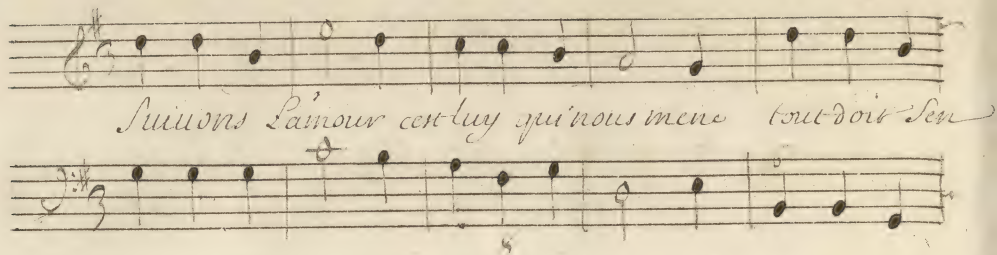 Suiuons L'amour cest luy qui nous mene tout doit Sen